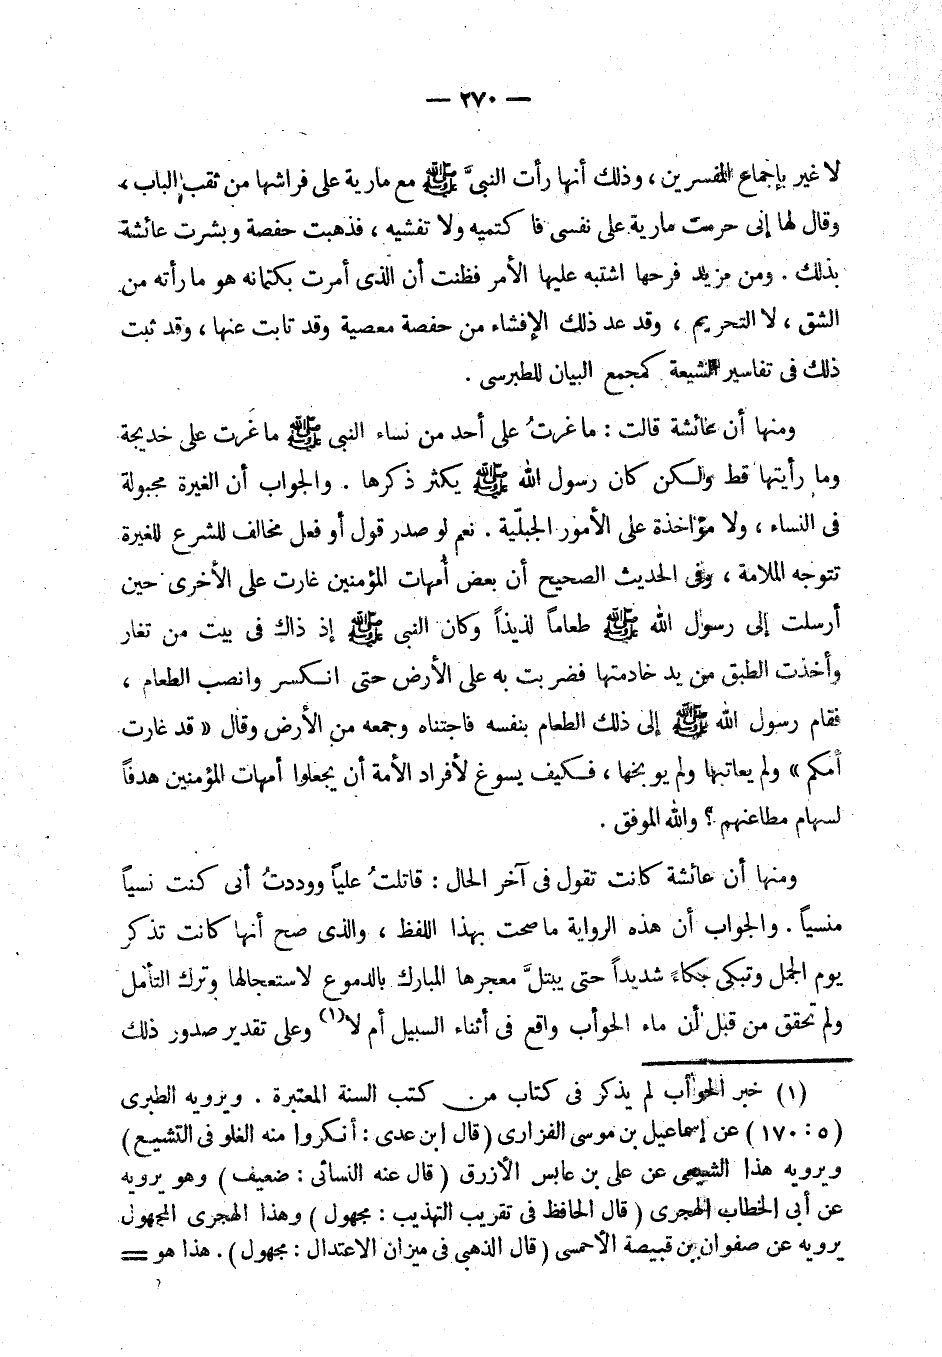 — ٢٧٠ —
لا غير بإجماع المفسرين ، وذلك أنها رأت النبىَّ ﷺ مع مارية على فراشها من ثقب الباب ،
وقال لها إنى حرمت مارية على نفسى فا كتميه ولا تفشيه ، فذهبت حفصة وبشرت عائشة
بذلك . ومن مزيد فرحها اشتبه عليها الأمر فظنت أن الذى أمرت بكتمانه هو ما رأته من
الشق ، لا التحريم ، وقد عد ذلك الإفشاء من حفصة معصية وقد تابت عنها ، وقد ثبت
ذلك فى تفاسير الشيعة كمجمع البيان للطبرسى .
ومنها أن عائشة قالت : ما غرتُ على أحد من نساء النبى ﷺ ما غَرت على خديجة
وما رأيتها قط ولـكن كان رسول الله ﷺ يكثر ذكرها . والجواب أن الغيرة مجبولة
فى النساء ، ولا مؤاخذة على الأمور الجبلّية . نعم لو صدر قول أو فعل مخالف للشرع للغيرة
تتوجه الملامة ، وفى الحديث الصحيح أن بعض أمهات المؤمنين غارت على الأخرى حين
أرسلت إلى رسول الله ﷺ طعاماً لذيذاً وكان النبى ﷺ إذ ذاك فى بيت من تغار
وأخذت الطبق من يد خادمتها فضربت به على الأرض حتى انـكسر وانصب الطعام ،
فقام رسول الله ﷺ إلى ذلك الطعام بنفسه فاجتناه وجمعه من الأرض وقال « قد غارت
أمكم » ولم يعاتبها ولم يوبخها ، فـكيف يسوغ لأفراد الأمة أن يجعلوا أمهات المؤمنين هدفاً
لسهام مطاعنهم ؟ والله الموفق .
ومنها أن عائشة كانت تقول فى آخر الحال : قاتلتُ علياً ووددتُ أنى كنت نسياً
منسياً . والجواب أن هذه الرواية ما صحت بهذا اللفظ ، والذى صح أنها كانت تذكر
يوم الجمل وتبكى بكاءً شديداً حتى يبتلَّ معجرها المبارك بالدموع لاستعجالها وترك التأمل
ولم تحقق من قبل أن ماء الحوأب واقع فى أثناء السبيل أم لا (١) وعلى تقدير صدور ذلك
(١) خبر الحوأب لم يذكر فى كتاب من كتب السنة المعتبرة . ويرويه الطبرى
(٥ : ١٧٠) عن إسماعيل بن موسى الفزارى (قال ابن عدى : أنكروا منه الغلو فى التشيـع)
ويرويه هذا الشيعى عن على بن عابس الأزرق (قال عنه النسائى : ضعيف) وهو يرويه
عن أبى الخطاب الهجرى (قال الحافظ فى تقريب التهذيب : مجهول) وهذا الهجرى المجهول
يرويه عن صفوان بن قبيصة الأحمسى (قال الذهبى فى ميزان الاعتدال : مجهول) . هذا هو =